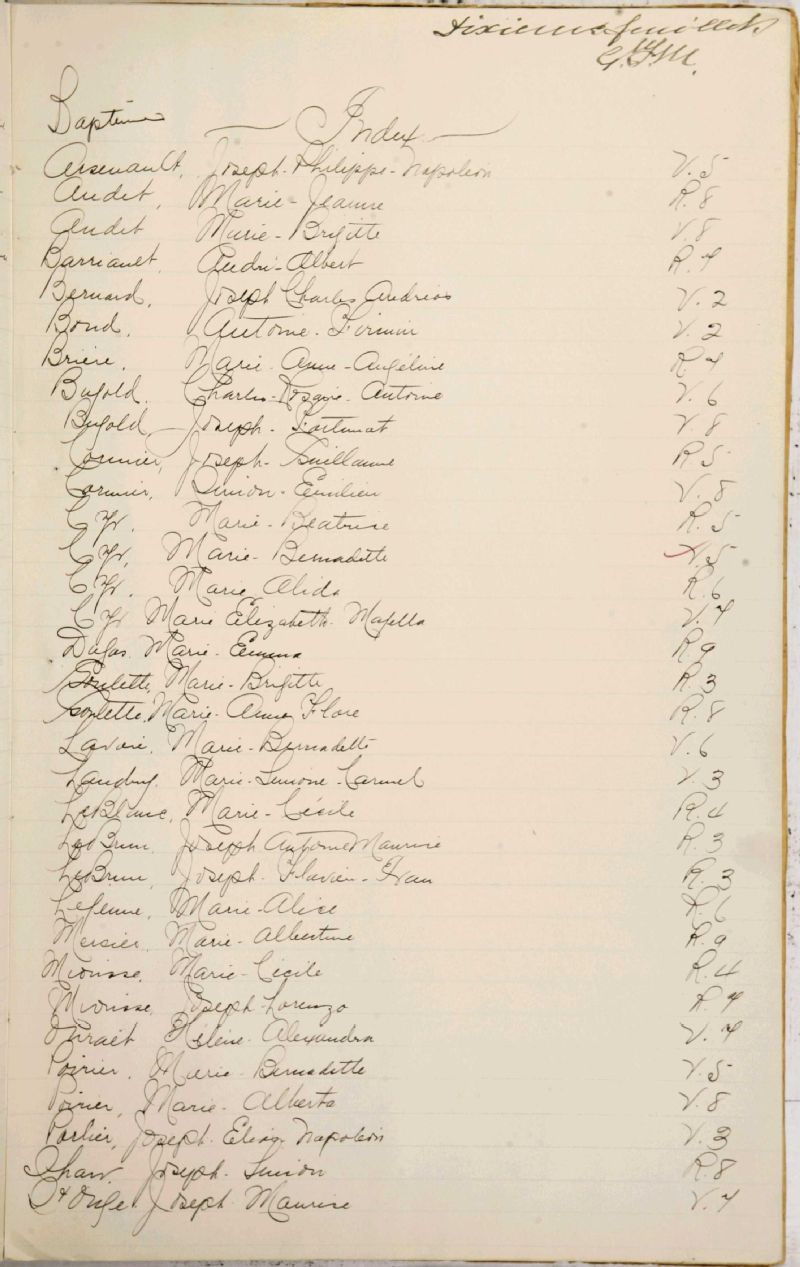 Dixieme feuillet
G.F.M.
Baptême — Index —
Arsenault, Joseph-Philippe-Napoleon V.5
Audet, Marie-Jeanne R.8
Audet Marie-Brigitte V.8
Barriault, André-Albert R.7
Bernard, Joseph Charles Andreas V.2
Bond, Antoine-Firmin V.2
Briere, Marie-Anne-Angéline R.7
Bujold, Charles-Rosaire-Antoine V.6
Bujold, Joseph-Fortunat V.8
Cormier, Joseph-Guillaume R.5
Cormier, Simon-Emilien V.8
Cyr, Marie-Beatrice R.5
Cyr, Marie-Bernadette V.5
Cyr, Marie Alida R.6
Cyr Marie Elizabeth-Majella V.7
Dugas, Marie-Emma R.9
Goulette, Marie-Brigitte R.3
Goulette, Marie-Anne Flore R.8
Lavoie, Marie-Bernadette V.6
Landry, Marie-Simone-Carmel V.3
LeBlanc, Marie-Cécile R.4
LeBrun, Joseph Antoine Maurice R.3
LeBrun, Joseph-Flavien-Ivan R.3
Lejeune, Marie-Alice R.6
Mercier, Marie-Albertine R.9
Miousse, Marie-Cécile R.4
Miousse, Joseph-Lorenzo R.7
Hélène-Alexandra V.7
Poirier, Marie-Bernadette V.5
Poirier, Marie-Alberta V.8
Porlier, Joseph-Elias Napoleon V.3
Shaw, Joseph-Simon R.8
St Onge, Joseph-Maurice V.7